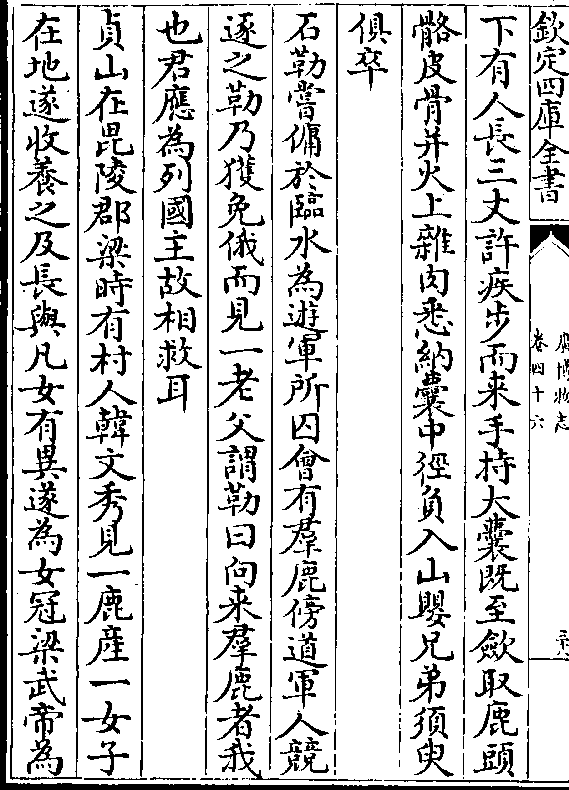 欽定四庫全書
廣博物志
卷四十六
下有人長三丈許疾步而来手持大囊既至歛取鹿頭
骼皮骨并火上雜肉悉納囊中徑負入山嬰兄弟須臾
俱卒
石勒嘗傭於臨水為遊軍所囚會有羣鹿傍道軍人競
逐之勒乃獲免俄而見一老父謂勒曰向来羣鹿者我
也君應為列國主故相救耳
貞山在毘陵郡梁時有村人韓文秀見一鹿産一女子
在地遂收養之及長與凡女有異遂為女冠梁武帝為